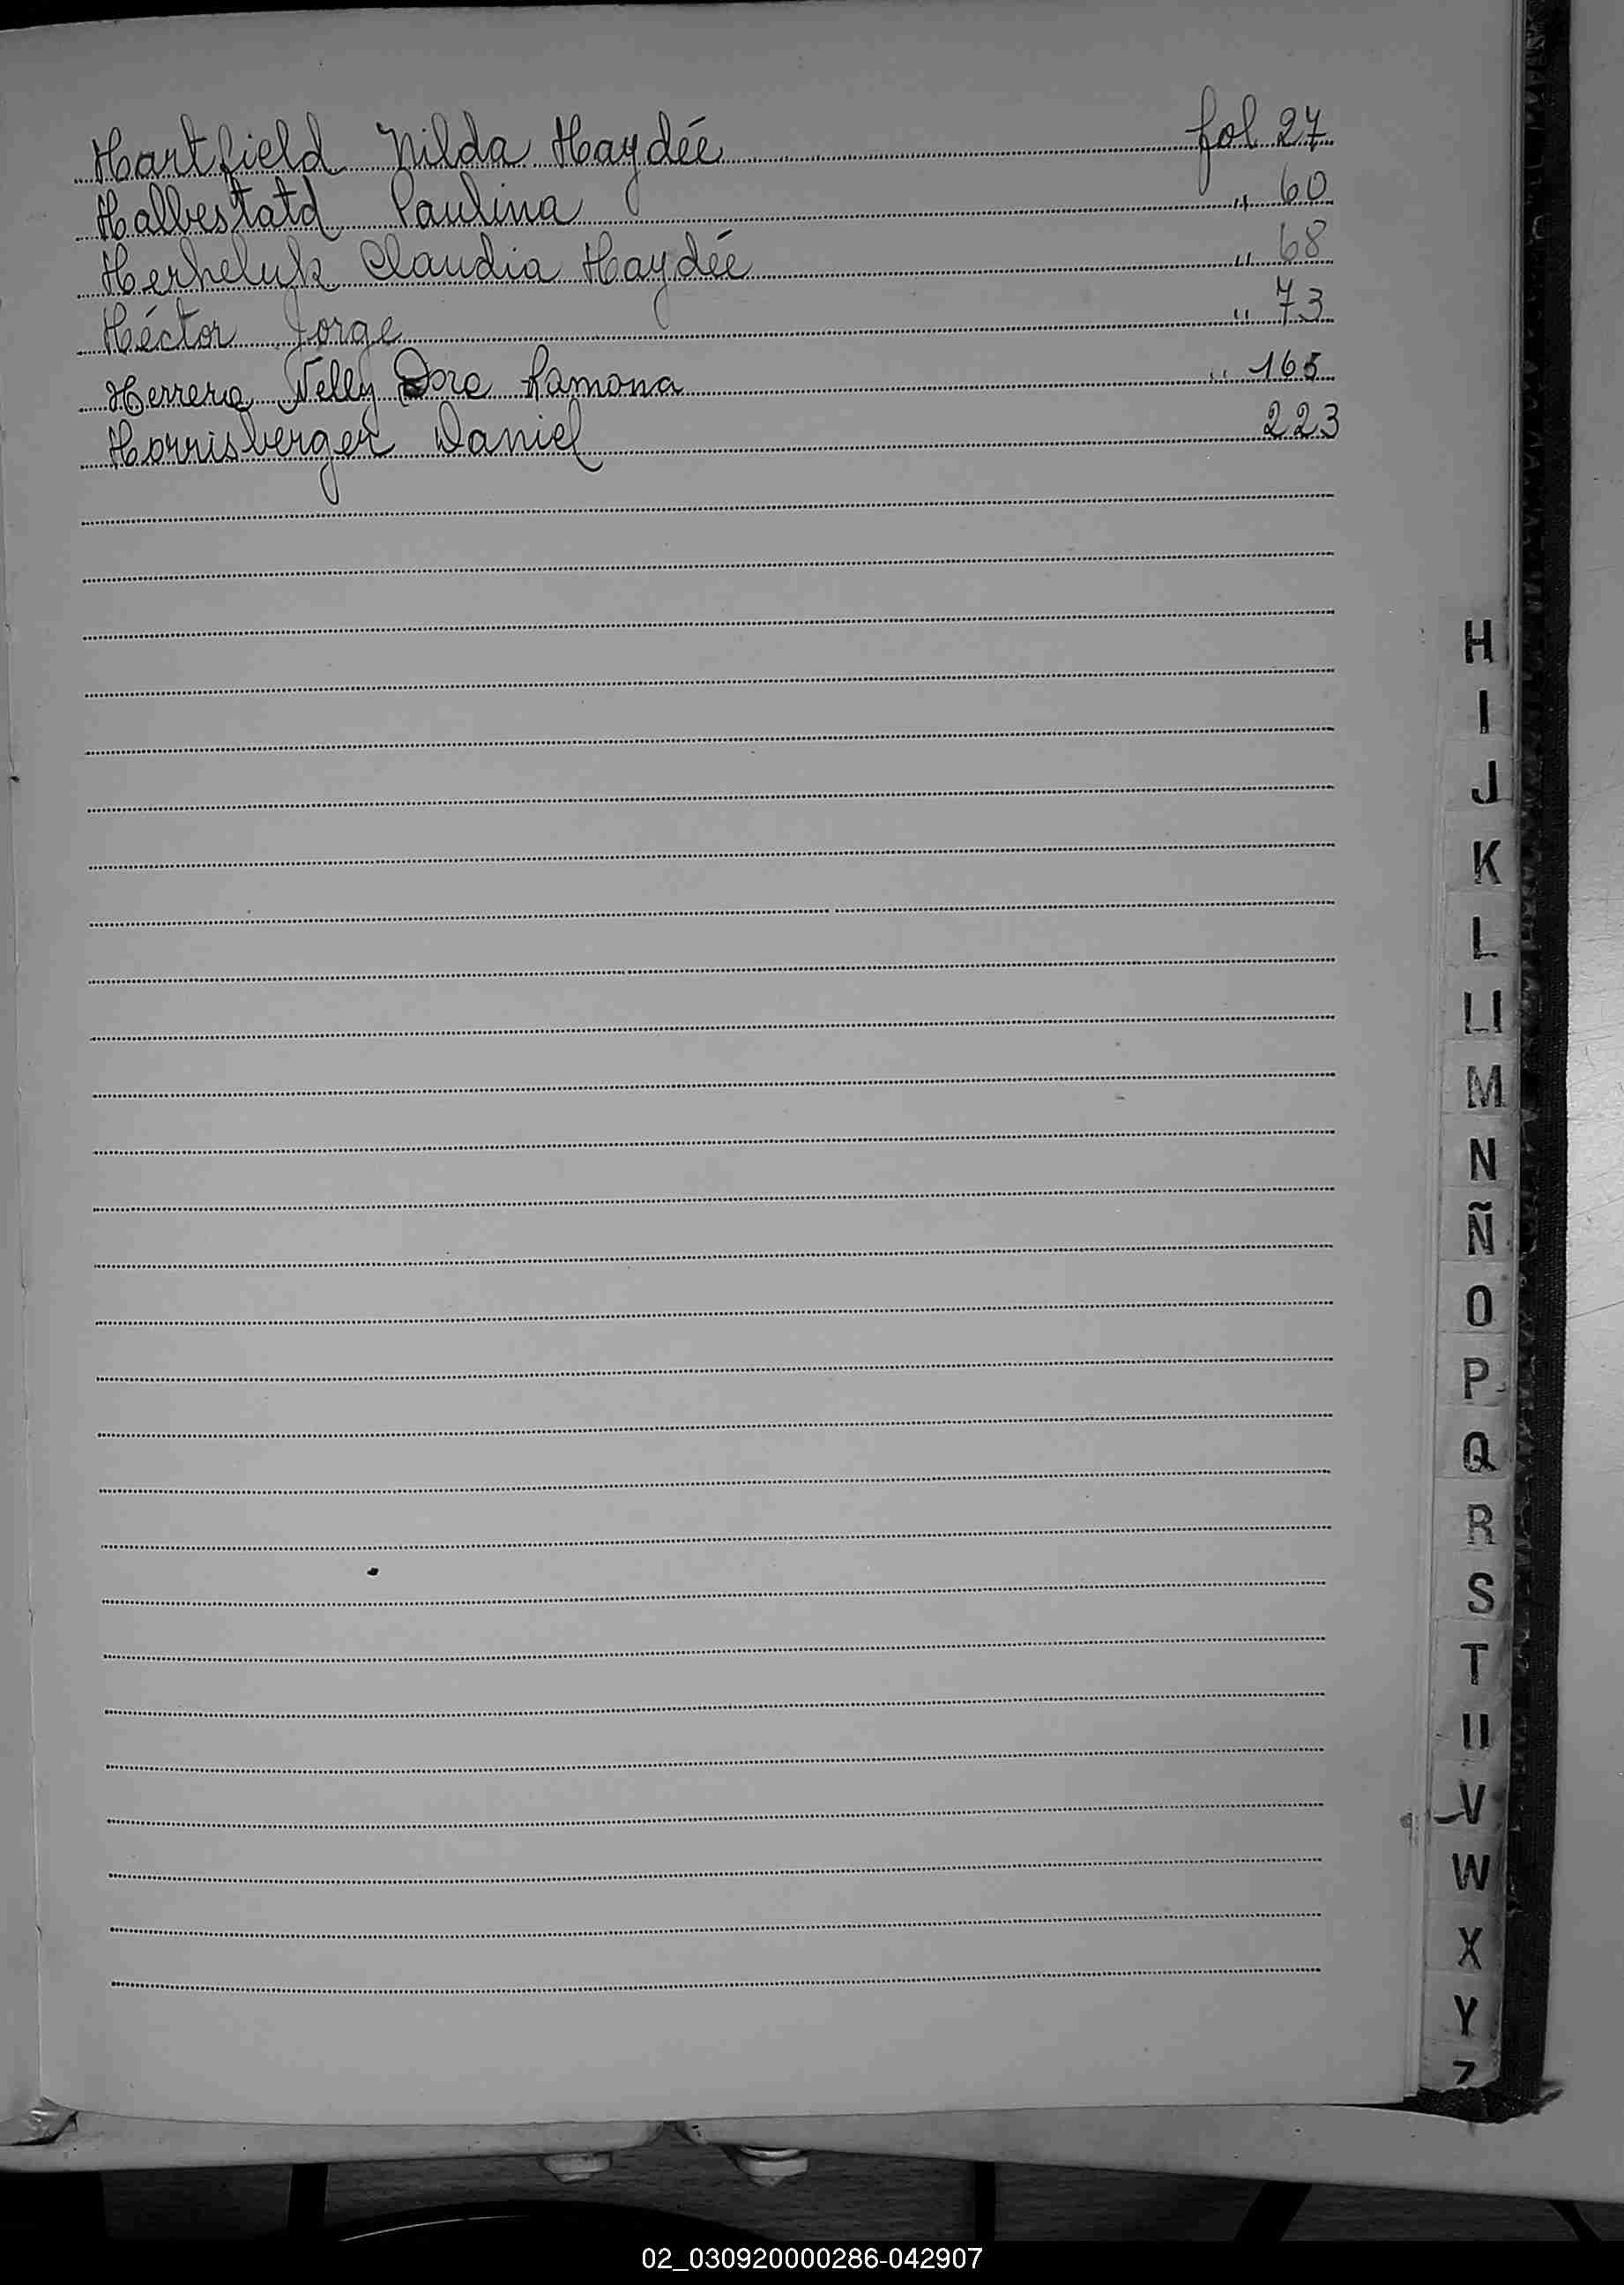 Hartfield Nilda Haydée fol 27
Halbestatd Paulina " 60
Herheluk Claudia Haydée " 68
Héctor Jorge " 73
Herrera Nelly Dora Ramona " 165
Horrisberger Daniel 223
H
I
J
K
L
Ll
M
N
Ñ
O
P
Q
R
S
T
U
V
W
X
Y
Z
02_030920000286-042907